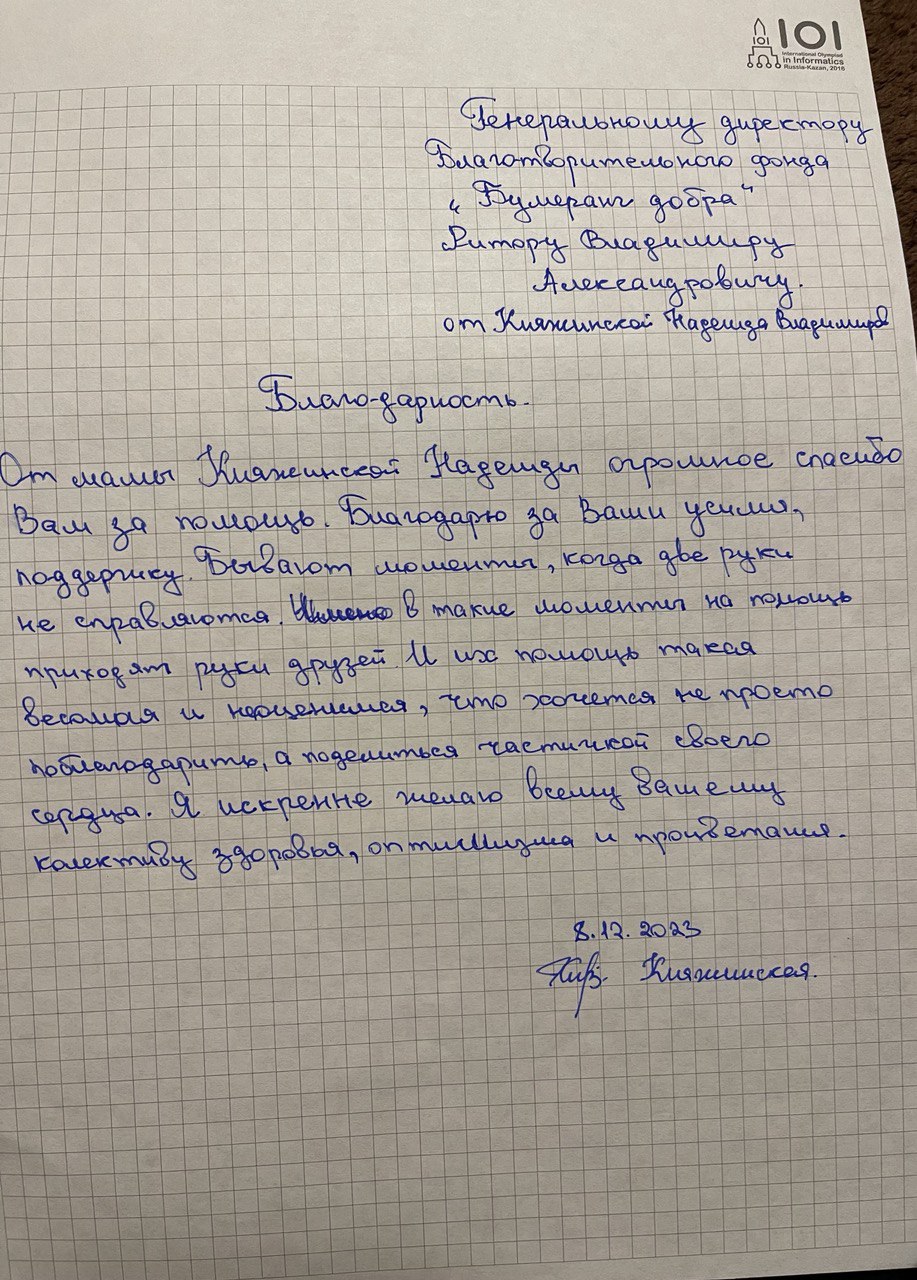 IOI
IOI
International Olympiad
in Informatics
Russia-Kazan, 2016
Генеральному директору
Благотворительного фонда
„Бумеранг добра"
Ритору Владимиру
Александровичу.
от Княжинской Надежда Владимиров
Благо-дарность.
От мамы Княжинской Надежды огромное спасибо
Вам за помощь. Благодарю за Ваши усилия,
поддержку. Бывают моменты, когда две руки
не справляются. Именно в такие моменты на помощь
приходят руки друзей. И их помощь такая
весомая и неоценимая, что хочется не просто
поблагодарить, а поделиться частичкой своего
сердца. Я искренне желаю всему вашему
колективу здоровья, оптимизма и процветания.
8.12.2023
Княжинская.